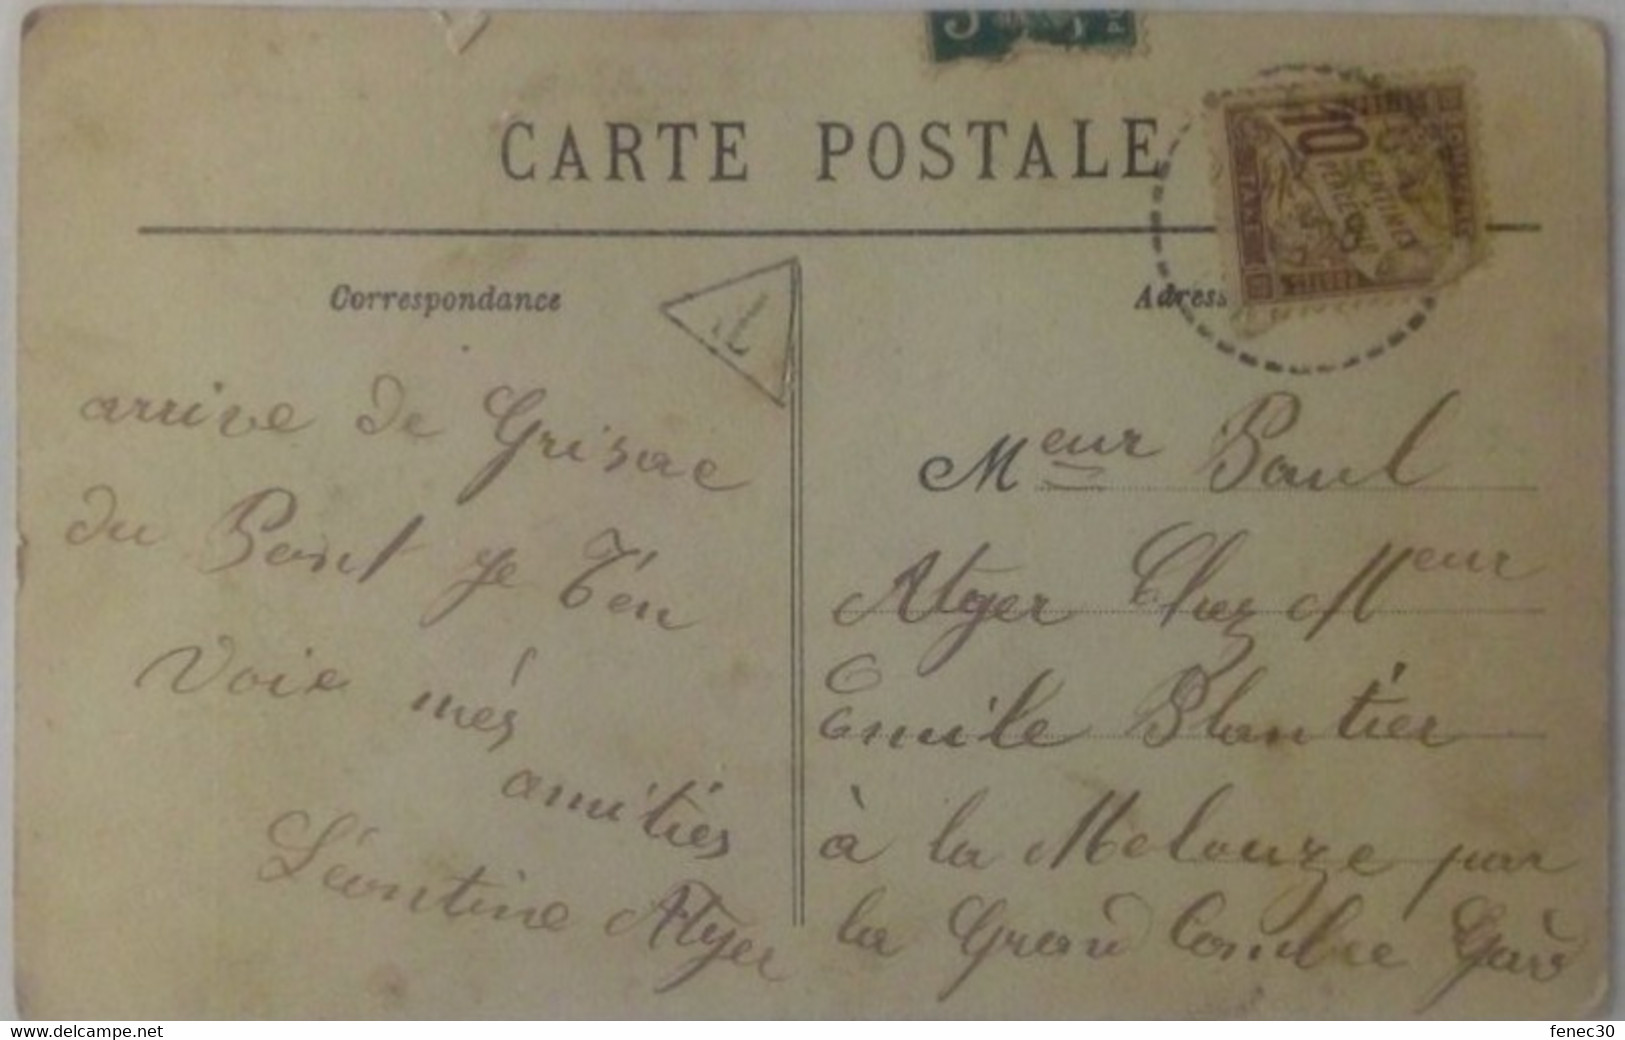 CARTE POSTALE
5
10
CENTIMES
Correspondance
T
Adress
arrive de Grisac
du Pont je t'en
voie més
amitiés
Léontine Atger
Meur Paul
Atger Chez Meur
Emile Plantier
à la Melouze par
la Grand Combe Gard
www.delcampe.net
fenec30